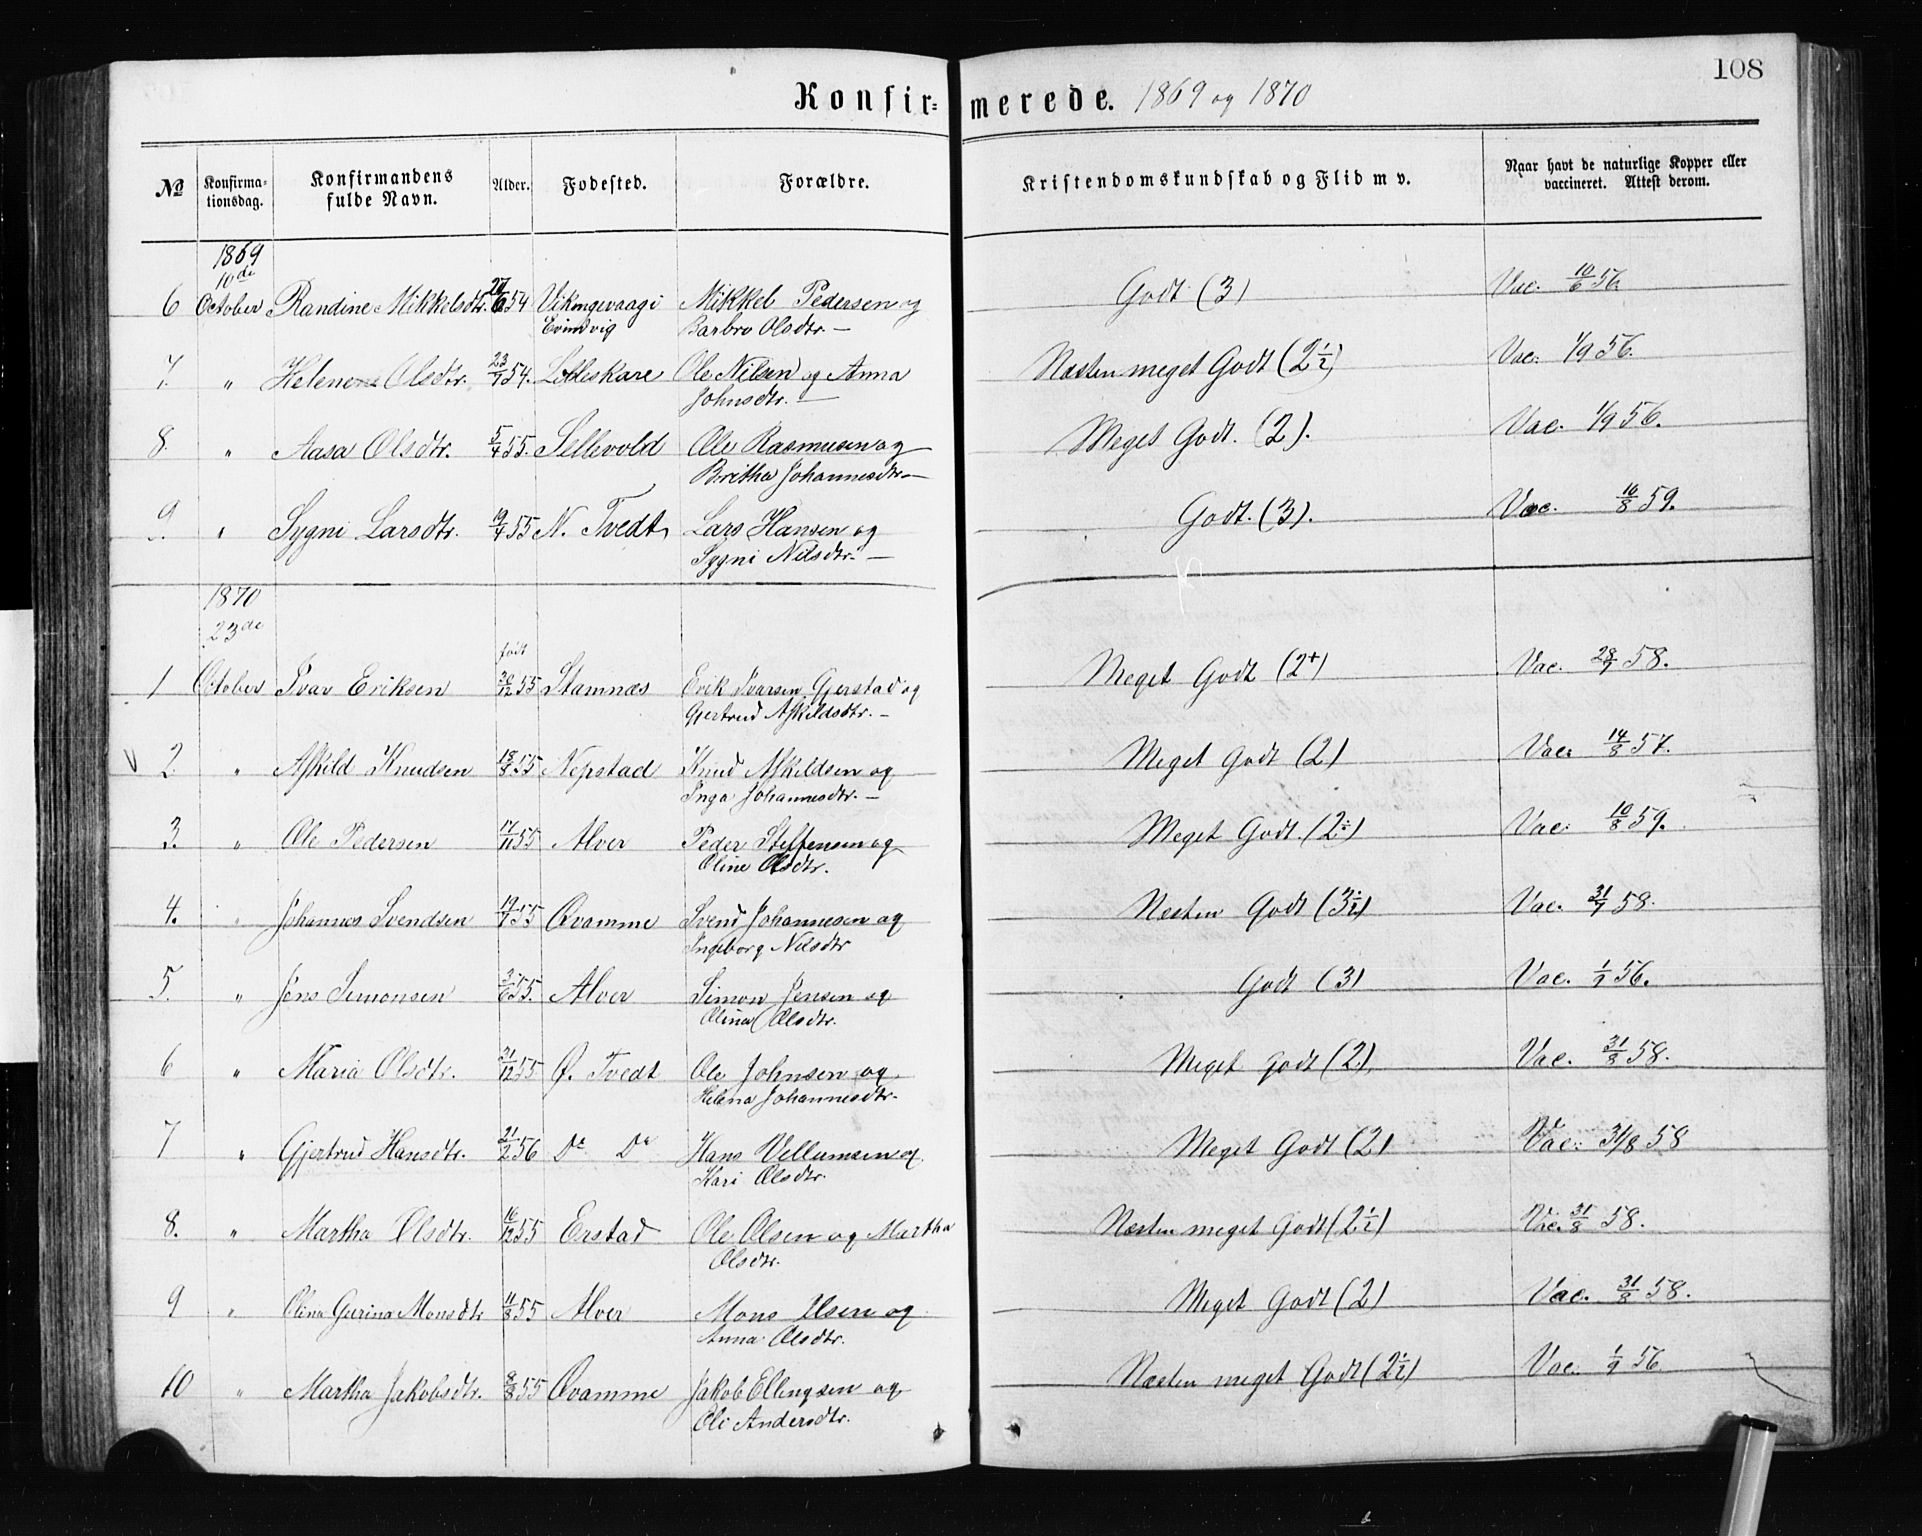 108
Konfir= merede. 1869 og 1870
No
Konfirma-
tionsdag.
Konfirmandens
fulde Navn.
Alder.
Fødested.
Forældre.
Kristendomskundskab og Flid m v.
Naar havt de naturlige Kopper eller
vaccineret. Attest derom.
1869
10de
6 October Randine Mikkelsdtr. 54 Vikingevaag i Mikkel Pedersen og Godt (3) Vac. 10/6 56.
Evindvig Barbro Olsdtr.—
7. " Helene Olsdtr. 23/7 54. Ole Nilsen og Anna Næsten meget Godt (2½) Vac. 1/9 56.
Johnsdtr.—
8. " Aasa Olsdtr. 5/4 55. Sellevold Ole Rasmusen og Meget Godt. (2). Vac. 1/9 56.
Britha Johannesdtr—
9. " Sygni Larsdtr. 19/4 55 N. Tvedt, Lars Hansen og Godt. (3). Vac. 16/8 59.
Sygni Nilsdtr.—
1870
23de
født
1 October Ivar Eriksen 20/12 55 Stamnæs Erik Ivarsen Gjerstad og Meget Godt (2+) Vac. 28/7 58.
Gjertrud Askildsdtr.—
2. " Askild Knudsen 18/8 55 Nepstad Knud Askildsen og Meget Godt (2) Vac. 14/8 57.
Inga Johannesdtr.—
3. " Ole Pedersen 17/11 55 Alver Peder Steffensen og Meget Godt. (2÷) Vac. 10/8 59.
Oline Olsdtr.
4. " Johannes Svendsen 19/7 55 Qvamme Svend Johannesen og Næsten Godt (3½) Vac. 31/7 58.
Ingeborg Nilsdtr
5. " Jens Simonsen 55. Alver Simon Jensen og Godt (3) Vac. 1/9 56.
Olina Olsdtr.
6 " Maria Olsdtr. 31/12 55 Ø. Tvedt Ole Johnsen og Meget godt (2). Vac. 31/8 58.
Helena Johannesdtr.
7 " Gjertrud Hansdtr. 21/2 56 Do Do Hans Vellumsen og Meget Godt (2) Vac. 31/8 58
Kari Olsdtr.
8. " Martha Olsdtr. 16/12 55 Erstad Ole Olsen og Martha Næsten meget Godt (2½) Vac. 31/8 58.
Olsdtr.
9 " Olina Gurina Monsdtr 11/8 55 Alver Mons Olsen og Meget Godt (2) Vac. 31/8 58.
Anna Olsdtr.
10 " Martha Jakobsdtr. 8/8 55 Qvamme Jakob Ellingsen og Næsten meget Godt (2½) Vac. 1/9 56
Oli Andersdtr.